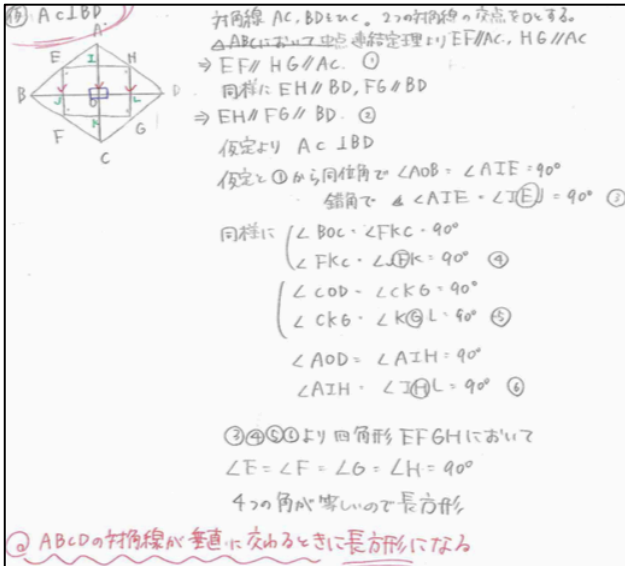 例 AC⊥BD
A
E I H
B J O L D
F K G
C
対角線 AC, BDをひく。2つの対角線の交点をOとする。
△ABCにおいて中点連結定理より EF//AC, HG//AC
⇒ EF//HG//AC. ①
同様に EH//BD, FG//BD
⇒ EH//FG//BD. ②
仮定より AC⊥BD
仮定と①から同位角で ∠AOB=∠AIE=90°
錯角で ∠AIE=∠IEJ=90° ③
同様に ∠BOC=∠FKC=90°
∠FKC=∠JFK=90° ④
∠COD=∠CKG=90°
∠CKG=∠KGL=90° ⑤
∠AOD=∠AIH=90°
∠AIH=∠IHL=90° ⑥
③④⑤⑥より四角形EFGHにおいて
∠E=∠F=∠G=∠H=90°
4つの角が等しいので長方形
ABCDの対角線が垂直に交わるときに長方形になる